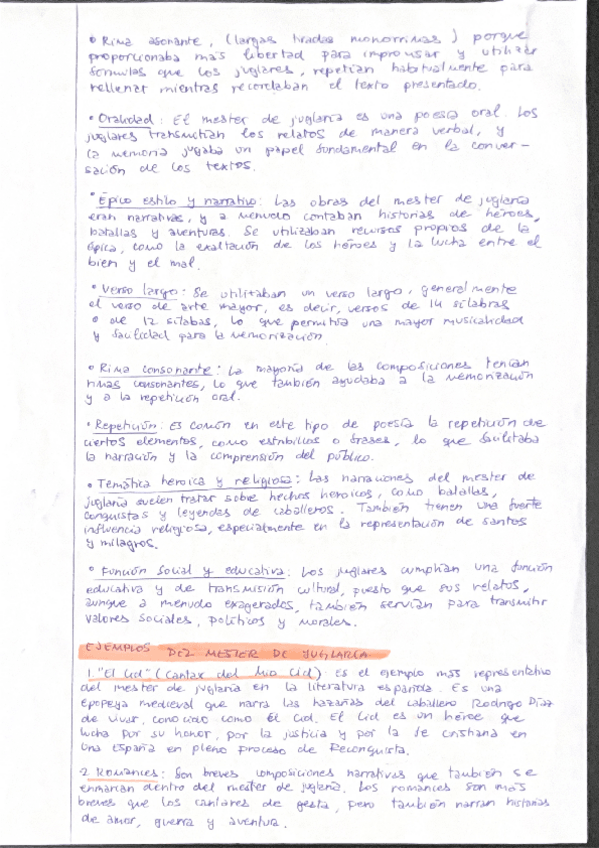 • Rima asonante, (largas tiradas monorrimas) porque
proporcionaba más libertad para improvisar y utilizar
fórmulas que los juglares, repetían habitualmente para
rellenar mientras recordaban el texto presentado.
• Oralidad: El mester de juglaría es una poesía oral. Los
juglares transmitían los relatos de manera verbal, y
la memoria jugaba un papel fundamental en la conver-
sación de los textos.
• Épico estilo y narrativo: Las obras del mester de juglaría
eran narrativas, y a menudo contaban historias de héroes,
batallas y aventuras. Se utilizaban recursos propios de la
épica, como la exaltación de los héroes y la lucha entre el
bien y el mal.
• Verso largo: Se utilizaban un verso largo, generalmente
el verso de arte mayor, es decir, versos de 14 sílabras
o de 12 sílabas, lo que permitía una mayor musicalidad
y facilidad para la memorización.
• Rima consonante: La mayoría de las composiciones tenían
rimas consonantes, lo que también ayudaba a la memorización
y a la repetición oral.
• Repetición: Es común en este tipo de poesía la repetición de
ciertos elementos, como estribillos o frases, lo que facilitaba
la narración y la comprensión del público.
• Temática heroica y religiosa: Las narraciones del mester de
juglaría suelen tratar sobre hechos heroicos, como batallas,
conquistas y leyendas de caballeros. También tienen una fuerte
influencia religiosa, especialmente en la representación de santos
y milagros.
• Función social y educativa: Los juglares cumplían una función
educativa y de transmisión cultural, puesto que sus relatos,
aunque a menudo exagerados, también servían para transmitir
valores sociales, políticos y morales.
EJEMPLOS DEL MESTER DE JUGLARÍA
1. "El Cid" (Cantar del Mio Cid) Es el ejemplo más representativo
del mester de juglaría en la literatura española. Es una
epopeya medieval que narra las hazañas del caballero Rodrigo Díaz
de Vivar, conocido como El Cid. El Cid es un héroe que
lucha por su honor, por la justicia y por la fe cristiana en
una España en pleno proceso de Reconquista.
2. Romances: Son breves composiciones narrativas que también se
enmarcan dentro del mester de juglaría. Los romances son más
breves que los cantares de gesta, pero también narran historias
de amor, guerra y aventura.